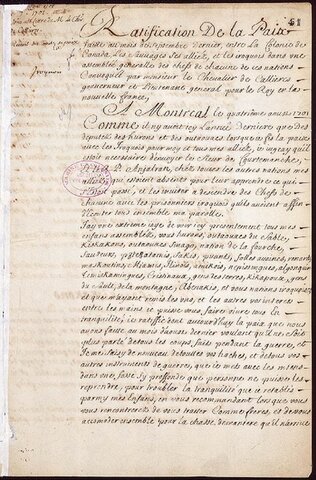 51
Ratification De la Paix
faite au mois de septembre dernier, entre La Colonie de
Canada, Les Sauvages ses alliez, et les iroquois dans une
assemblée generalle des chefs de chacune de ces nations
Convoquée par monsieur le Chevalier de Callieres
gouverneur et Lieutenant general pour le Roy en la
nouvelle france,
A Montreal le quatrieme aoust 1701
Comme il n'y auoit icy l'année Derniere que des
deputez des hurons et des outaouacs lorsque je fis la paix
auec les Iroquois pour moy et tous mes alliez, ie iugeay qu'il
estoit necessaire d'enuoyer le sieur de Courtemanche,
et le R. P. Anjalran, chez toutes les autres nations mes
alliez qui estoient absents pour leur apprendre ce qui
s'estoit passé, et les inuiter a descendre des Chefs de
chacune auec les prisonniers iroquois qu'ils auoient affin
d'Ecouter tous ensemble ma parolle.
J'ay une extreme ioye de voir icy presentement tous mes
enfans assemblez, vous hurons, outaouacs du sable,
Kiskakons, outaouacs Sinago, nation de la fourche,
sauteurs, poüteoüatamis, sakis, puants, folles auoines, renards,
maskoutins, Miamis, Ilinois, amikois, nepissingues, algonquins
Temiskamingues, Cristinaux, gens des terres, Kikapoux, gens
du Sault, de la montagne, Abenakis, et vous nations iroquoises
et que m'ayant remis les uns et les autres vos interets
entre les mains ie puisse vous faire viure tous en
tranquilité; ie ratiffie donc aujourd'huy la paix que nous
auons faite au mois d'aoust dernier voulant qu'il ne soit
plus parlé de tous les coups faits pendant la guerre, et
Je me saisy de nouueau de toutes vos haches, et de tous vos
autres instruments de guerre, que ie mets auec les miens
dans une fosse sy profonde que personne ne puisse les
reprendre, pour troubler la tranquilité que ie retablis
parmy mes Enfans, en vous recommandant lorsque vous
vous rencontrerez de vous traiter Comme freres, et de vous
accomoder ensemble pour la chasse, de maniere qu'il n'arriue